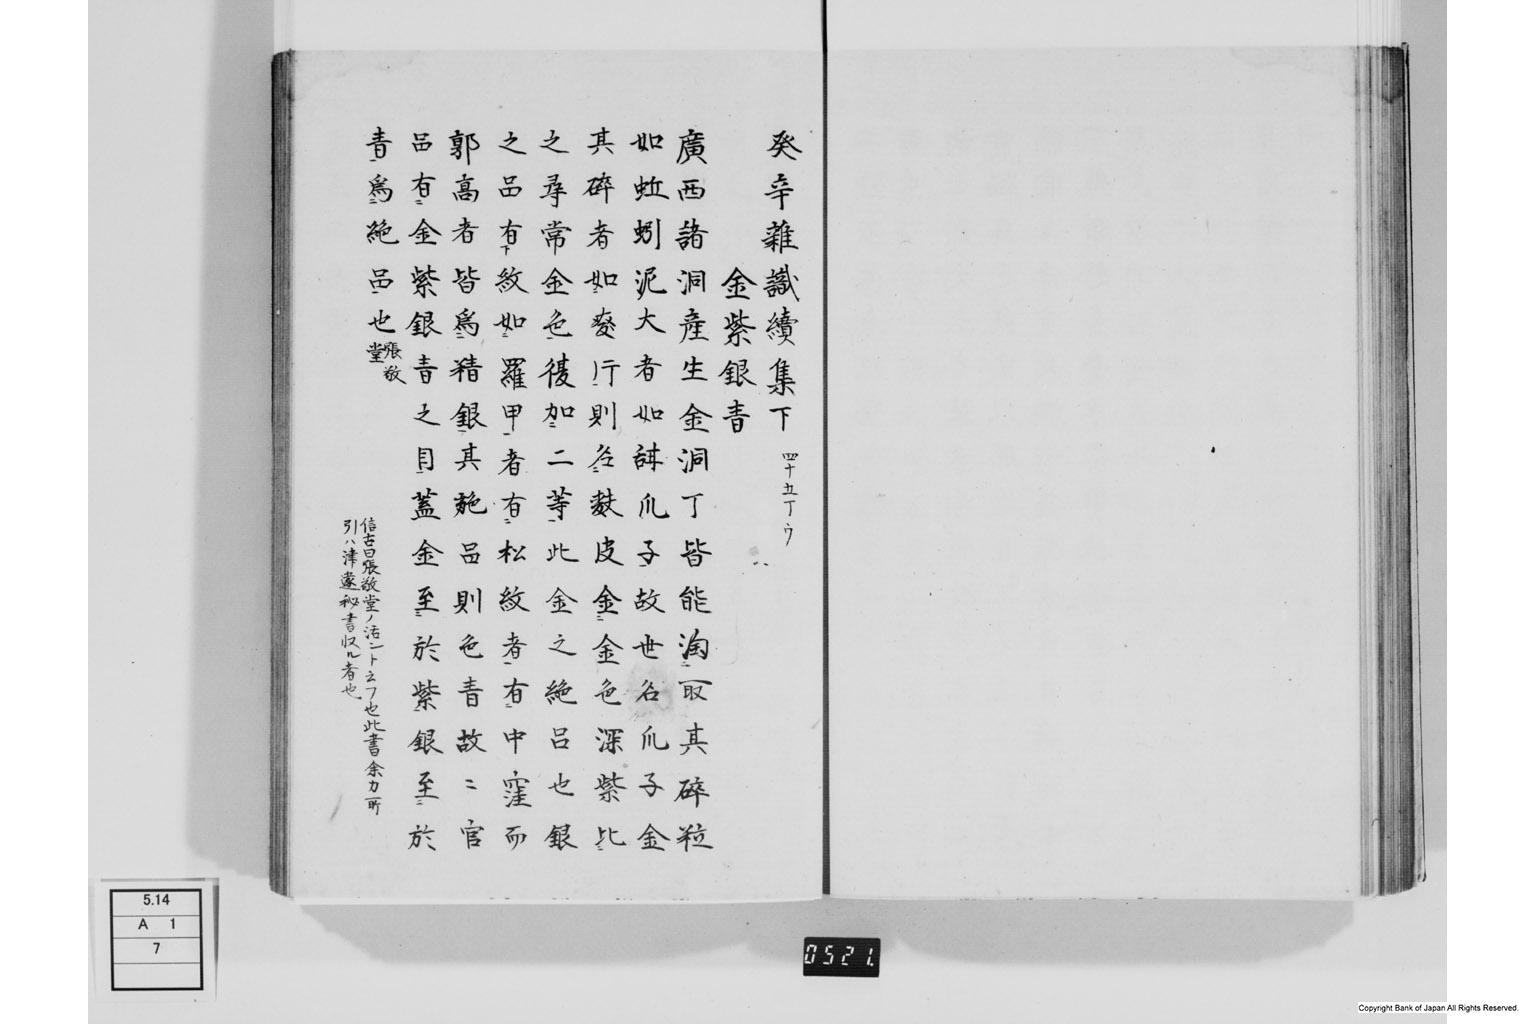 癸辛雜識續集下 四十五丁ウ
金紫銀青
廣西諸洞産生金洞丁皆能淘取其碎粒
如蚯蚓泥大者如甜爪子故世名爪子金
其碎者如麥片則名麩皮金金色深紫比
之尋常金色復加二等此金之絶品也銀
之品有下紋如羅甲者有松紋者有中窪而
郭高者皆爲精銀其絶品則色青故二官
品有金紫銀青之目蓋金至於紫銀至於
青爲絶品也張敬堂
信古曰張敬堂ノ話ント云フ也此書余カ所
引ハ津逮秘書収ル者也
5.14
A 1
7
0521.
Copyright Bank of Japan All Rights Reserved.